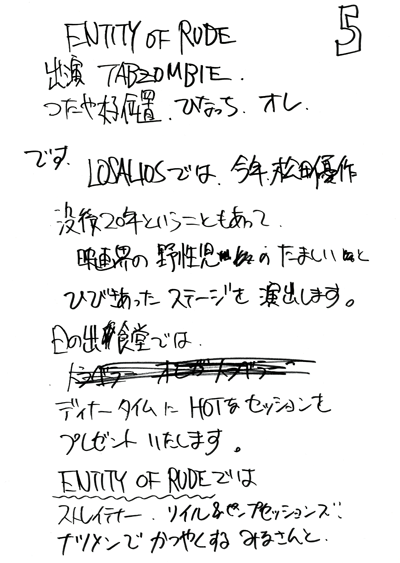 5
ENTITY OF RUDE
出演 TABZOMBIE.
つたや好位置、ひなっち、オレ.
です.
LOSALIOSでは、今年、松田優作
没後20年ということもあって、
映画界の野性児のたましいと
ひびきあったステージを演出します。
日の出食堂では、
ディナータイムにHOTなセッションを
プレゼントいたします。
ENTITY OF RUDEでは
ストレイテナー、ソイル&ピンプセッションズ、
ナツメンでかつやくするみなさんと、